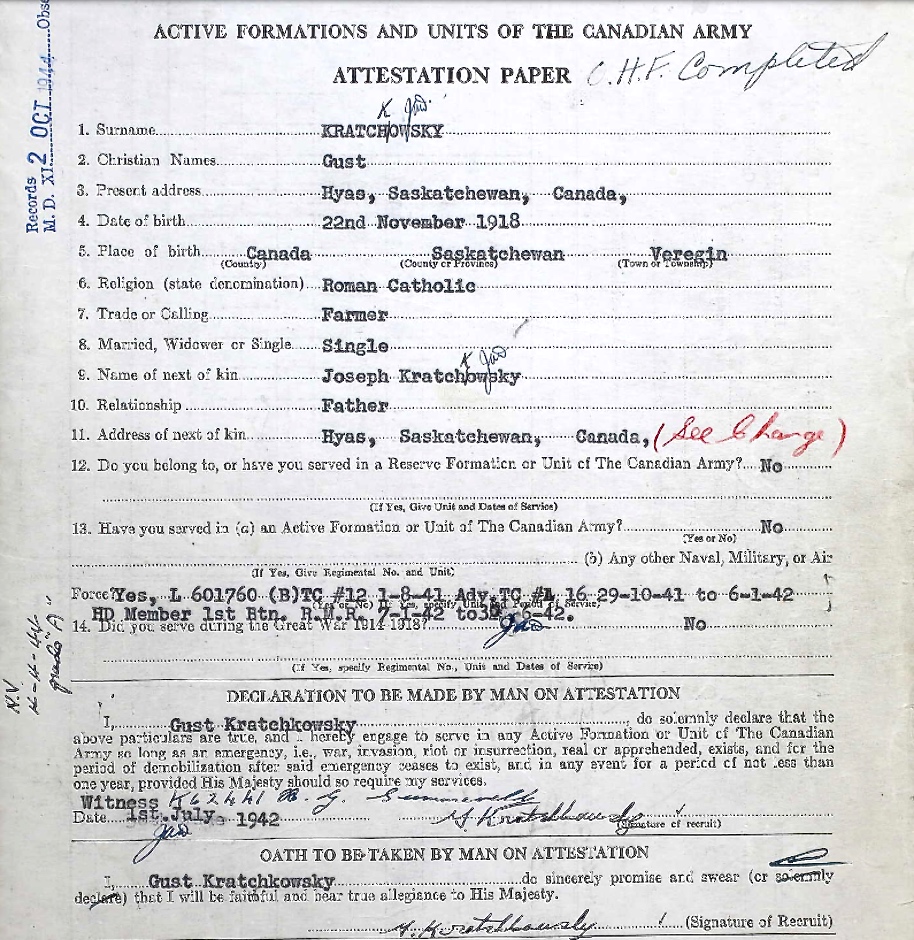 ACTIVE FORMATIONS AND UNITS OF THE CANADIAN ARMY
ATTESTATION PAPER O.H.F. Completed
Records
M. D. XI 2 OCT 1944
K
1. Surname KRATCHOWSKY
2. Christian Names Gust
3. Present address Hyas, Saskatchewan, Canada,
4. Date of birth 22nd November 1918
5. Place of birth Canada Saskatchewan Veregin
(County) (County or Province) (Town or Township)
6. Religion (state denomination) Roman Catholic
7. Trade or Calling Farmer
8. Married, Widower or Single Single
K
9. Name of next of kin Joseph Kratchowsky
10. Relationship Father
11. Address of next of kin Hyas, Saskatchewan, Canada, (See Change)
12. Do you belong to, or have you served in a Reserve Formation or Unit of The Canadian Army? No
(If Yes, Give Unit and Dates of Service)
13. Have you served in (a) an Active Formation or Unit of The Canadian Army? No
(Yes or No)
(b) Any other Naval, Military, or Air
(If Yes, Give Regimental No. and Unit)
Force? Yes, L 601760 (B)TC #12 1-8-41 Adv. TC 16 29-10-41 to 6-1-42
(Yes or No) If Yes, specify Unit and Period of Service.
HD Member 1st Btn. R.M.R. 7-1-42 to -6-42.
14. Did you serve during the Great War 1914-1918? No
(If Yes, specify Regimental No., Unit and Dates of Service)
N.V.
4-4-44
"A"
DECLARATION TO BE MADE BY MAN ON ATTESTATION
I, Gust Kratchkowsky, do solemnly declare that the
above particulars are true, and I hereby engage to serve in any Active Formation or Unit of The Canadian
Army so long as an emergency, i.e., war, invasion, riot or insurrection, real or apprehended, exists, and for the
period of demobilization after said emergency ceases to exist, and in any event for a period of not less than
one year, provided His Majesty should so require my services.
Witness K62441
Date 1st. July 1942 G. Kratchkowsky
(Signature of recruit)
OATH TO BE TAKEN BY MAN ON ATTESTATION
I, Gust Kratchkowsky do sincerely promise and swear (or solemnly
declare) that I will be faithful and bear true allegiance to His Majesty.
G. Kratchkowsky (Signature of Recruit)